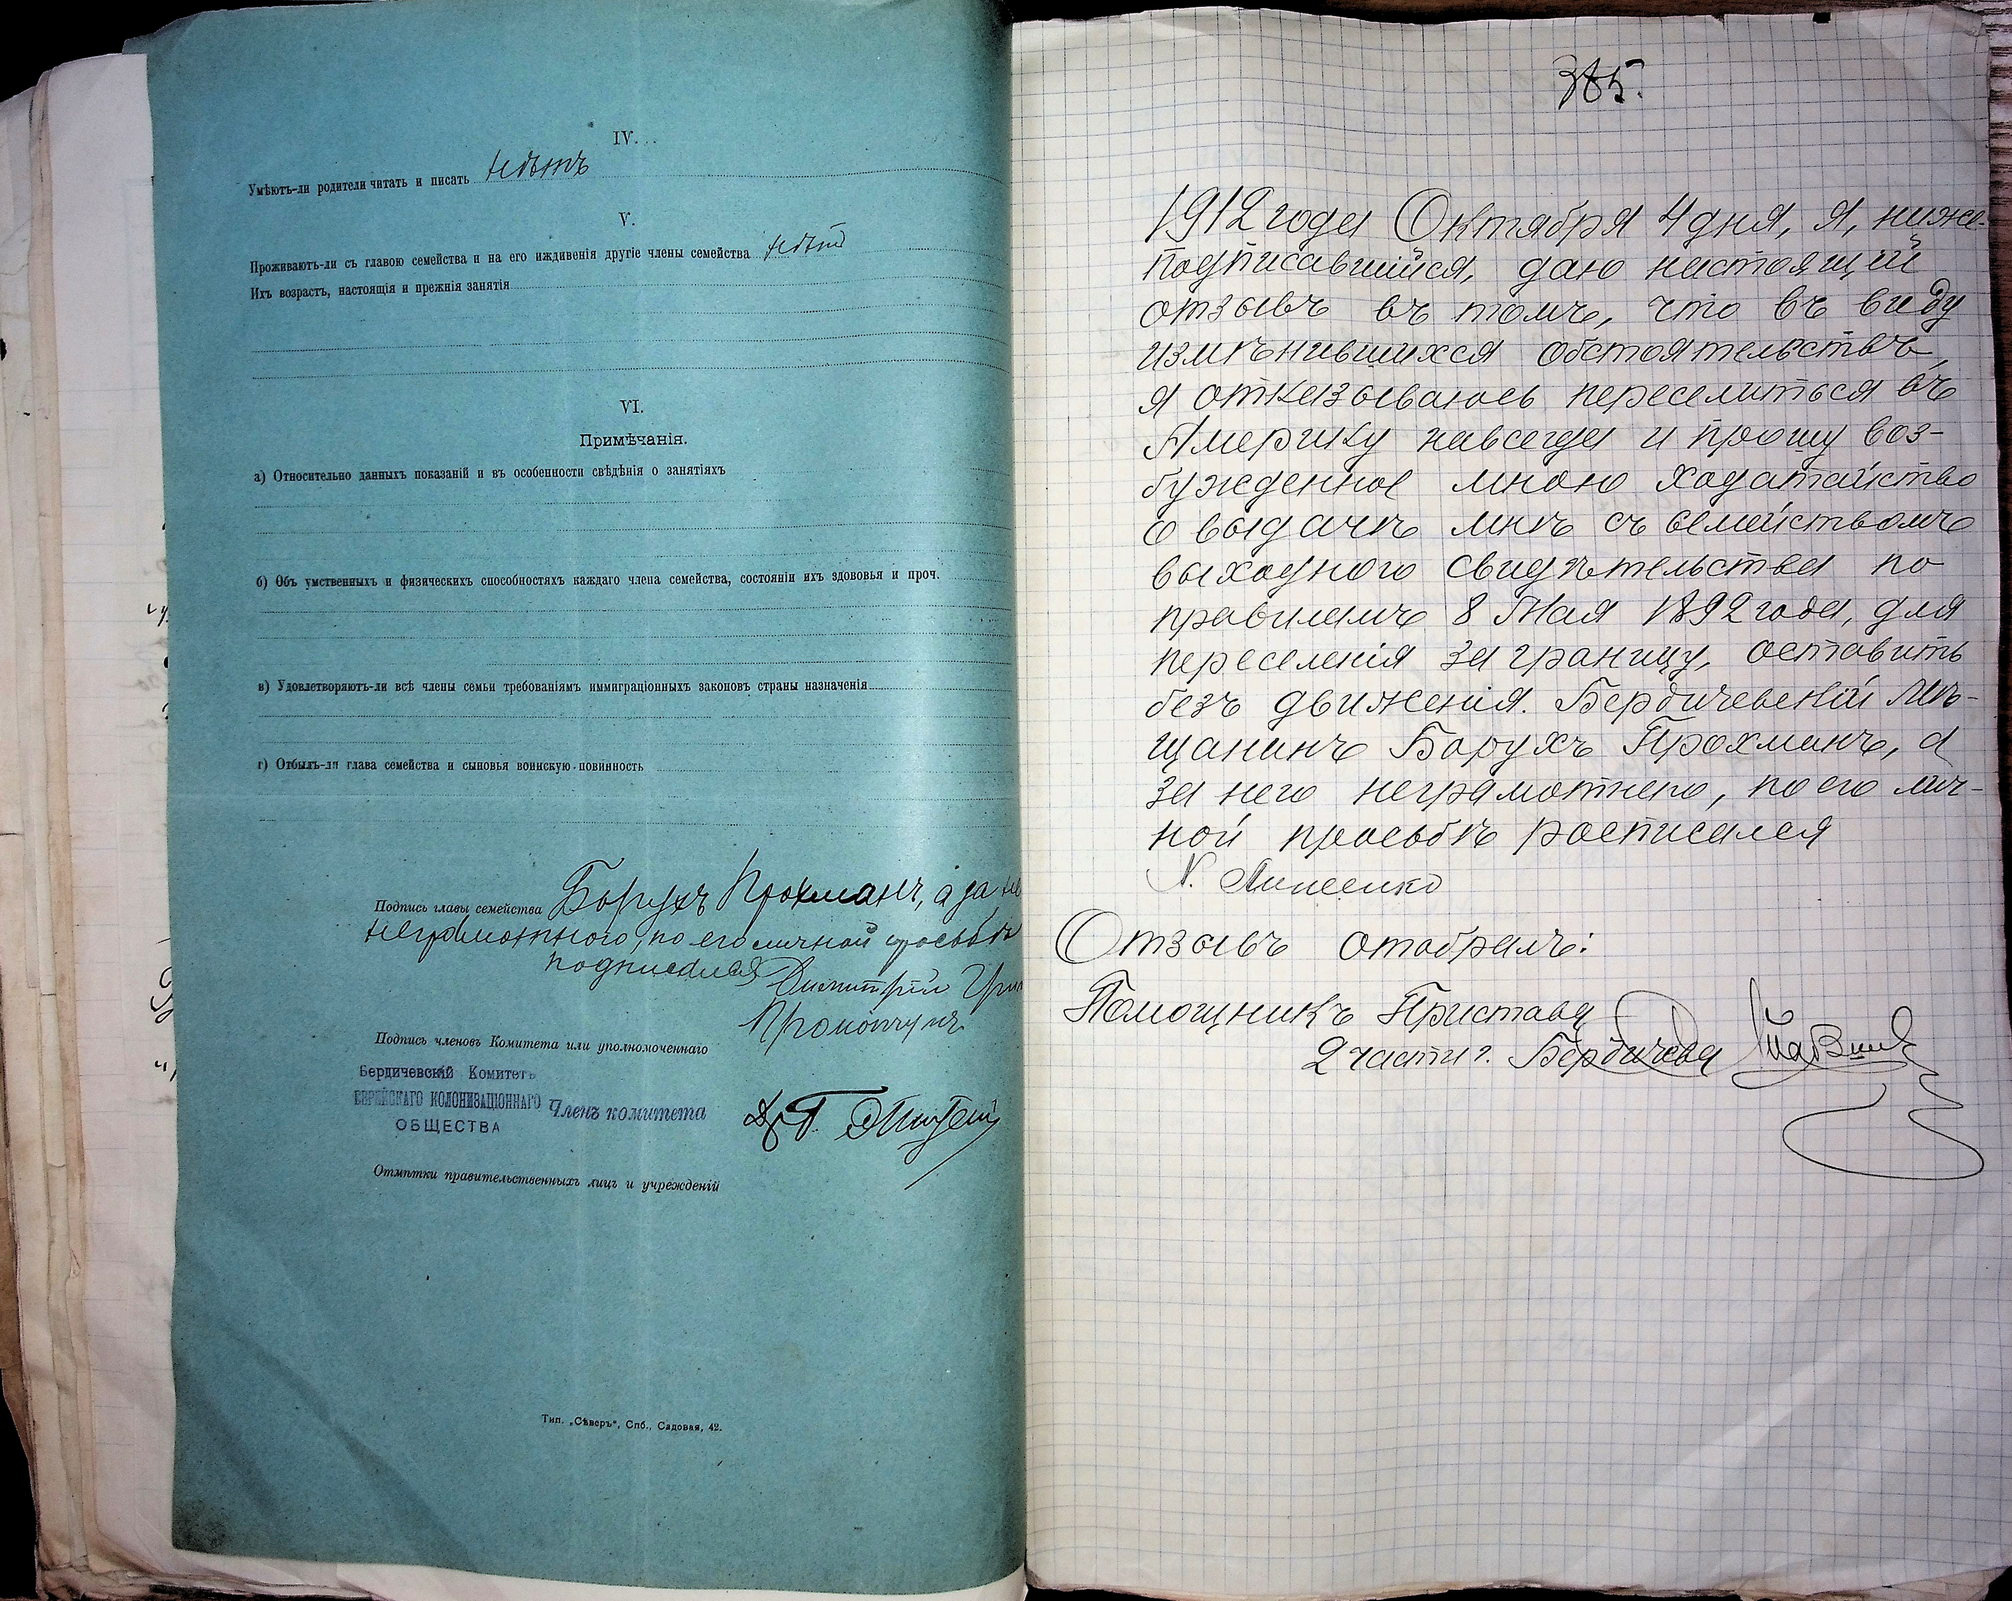 IV.
Умѣютъ-ли родители читать и писать нѣтъ
V.
Проживаютъ-ли съ главою семейства и на его иждивенія другіе члены семейства нѣтъ
Ихъ возрастъ, настоящія и прежнія занятія
VI.
Примѣчанія.
а) Относительно данныхъ показаній и въ особенности свѣдѣнія о занятіяхъ
б) Объ умственныхъ и физическихъ способностяхъ каждаго члена семейства, состояніи ихъ здововья и проч.
в) Удовлетворяютъ-ли всѣ члены семьи требованіямъ иммиграціонныхъ законовъ страны назначенія
г) Отбылъ-ли глава семейства и сыновья воинскую повинность
Подпись главы семейства Борухъ Прохманъ, а за
неграмотного, по его личной просьбѣ
подписался Дмитрій
Подпись членовъ Комитета или уполномоченнаго
Бердичевскій Комитетъ
ЕВРЕЙСКАГО КОЛОНИЗАЦІОННАГО
ОБЩЕСТВА
Членъ комитета
Отмѣтки правительственныхъ лицъ и учрежденій
Тип. „Сѣверъ“, Спб., Садовая, 42.
385.
1912 года Октября 4 дня, я, ниже-
подписавшійся, даю настоящій
отзывъ въ томъ, что въ виду
измѣнившихся обстоятельствъ,
я отказываюсь переселиться въ
Америку навсегда и прошу воз-
бужденное мною ходатайство
о выдачѣ мнѣ съ семействомъ
выходного свидѣтельства по
правиламъ 8 Мая 1892 года, для
переселенія заграницу, оставить
безъ движенія. Бердичевскій мѣ-
щанинъ Борухъ Прохманъ, а
за него неграмотнаго, по его лич-
ной просьбѣ росписался
Отзывъ отобралъ:
Помощникъ Пристава
2 части г. Бердичева